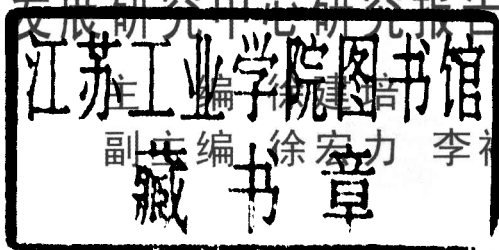 发展研究中心研究报告
江苏工业学院图书馆
主 编 徐建培
副主编 徐宏力 李
藏书章